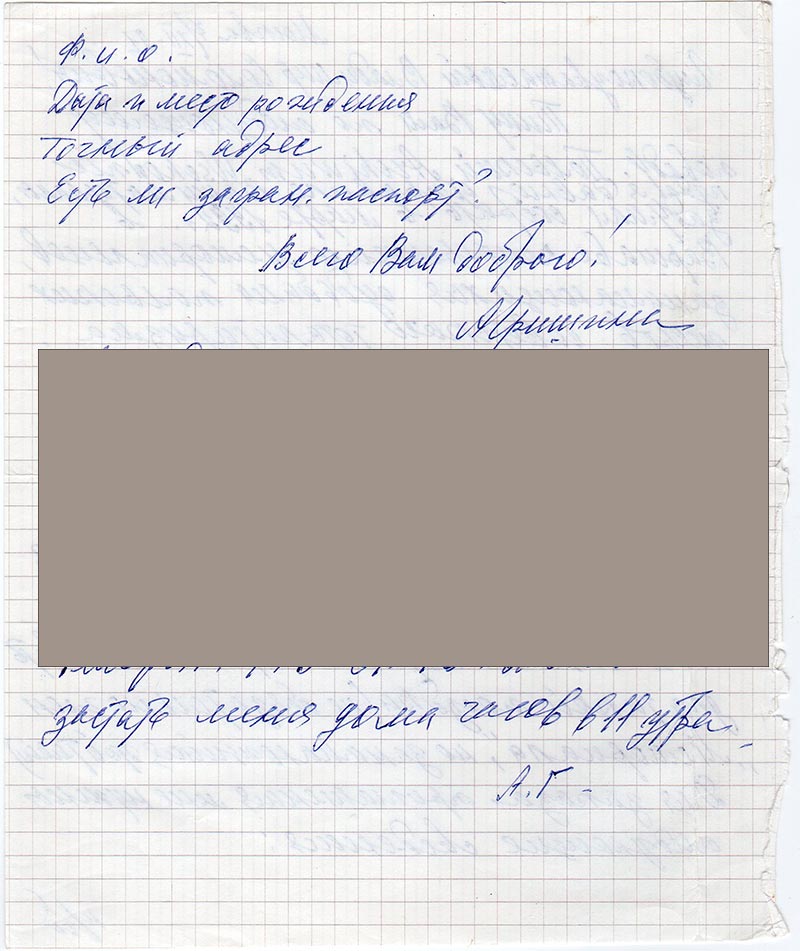 Ф.и.о.
Дата и место рождения
точный адрес
Есть ли загран. паспорт?
Всего Вам доброго!
АГришина
застать меня дома часов в 11 утра.
А.Г.